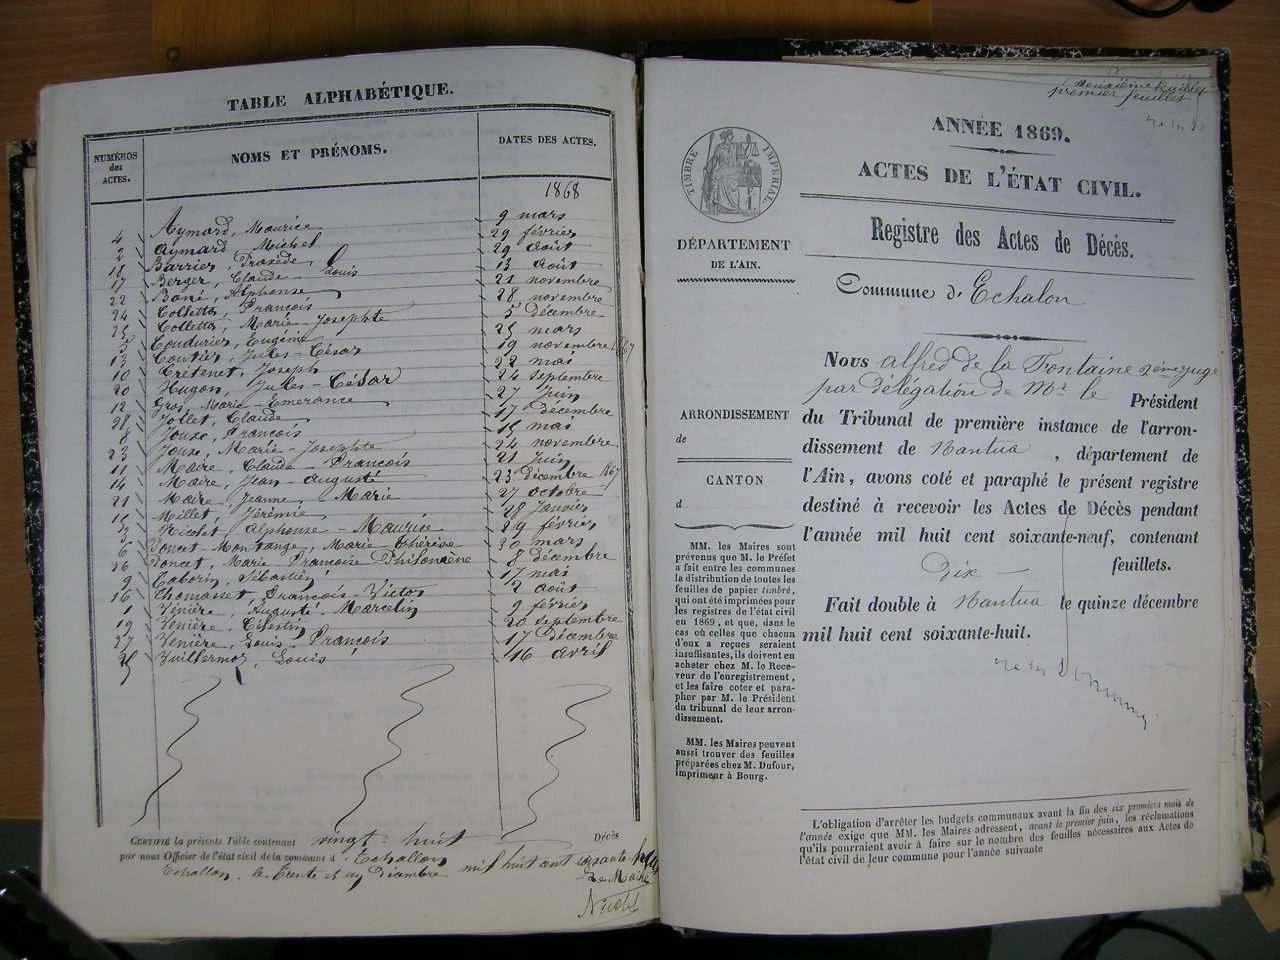 TABLE ALPHABÉTIQUE.
NUMÉROS des ACTES.
NOMS ET PRÉNOMS.
DATES DES ACTES.
1868
4 Aymard, Maurice 9 mars
2 Aymard, Michel 29 février
18 Barrier, Praxède 29 août
17 Berger, Claude-Louis 13 août
22 Boné, Alphonse 21 novembre
24 Collettaz, François 28 novembre
25 Collettaz, Marie-Josephte 5 décembre
5 Coudurier, Eugénie 25 mars
13 Coutier, Jules-César 19 novembre 1867
10 Crétenet, Joseph 22 mai
20 Hugon, Jules-César 24 septembre
12 Gros, Marie-Emerance 27 Juin
28 Jollet, Claude 17 décembre
8 Jouxe, François 15 mai
23 Jouxe, Marie-Josephte 24 novembre
11 Maire, Claude-François 21 Juin
14 Maire, Jean-Auguste 23 décembre 1867
21 Maire, Jeanne-Marie 27 octobre
15 Millet, Jérémie 28 Janvier
3 Nicolet, Alphonse-Maurice 29 février
6 Poncet-Montange, Marie-Thérèse 30 mars
26 Poncet, Marie Françoise Philomène 8 décembre
9 Taborin, Sébastien 17 mai
16 Thomasset, François-Victor 2 août
1 Venière, Auguste-Marcelin 9 février
19 Venière, Célestin 20 septembre
27 Venière, Louis-François 17 décembre
Vuillermoz, Louis 16 avril
CERTIFIÉ la présente Table contenant vingt-huit Décès
par nous Officier de l'état civil de la commune d'Echallon
Echallon, le trente et un Décembre mil huit cent soixante huit
Le Maire
ANNÉE 1869.
ACTES DE L'ÉTAT CIVIL.
Registre des Actes de Décès.
Commune d'Echalon
deuxième feuillet
premier feuillet
TIMBRE IMPÉRIAL
DÉPARTEMENT
DE L'AIN.
ARRONDISSEMENT
de
CANTON
d
MM. les Maires sont
prévenus que M. le Préfet
a fait entre les communes
la distribution de toutes les
feuilles de papier timbré,
qui ont été imprimées pour
les registres de l'état civil
en 1869, et que, dans le
cas où celles que chacun
d'eux a reçues seraient
insuffisantes, ils doivent en
acheter chez M. le Rece-
veur de l'enregistrement,
et les faire coter et para-
pher par M. le Président
du tribunal de leur arron-
dissement.
MM. les Maires peuvent
aussi trouver des feuilles
préparées chez M. Dufour,
imprimeur à Bourg.
Nous alfred de la Fontaine 2ème juge
par délégation de Mr le Président
du Tribunal de première instance de l'arron-
dissement de Nantua, département de
l'Ain, avons coté et paraphé le présent registre
destiné à recevoir les Actes de Décès pendant
l'année mil huit cent soixante-neuf, contenant
Dix feuillets.
Fait double à Nantua le quinze décembre
mil huit cent soixante-huit.
L'obligation d'arrêter les budgets communaux avant la fin des six premiers mois de
l'année exige que MM. les Maires adressent, avant le premier juin, les réclamations
qu'ils pourraient avoir à faire sur le nombre des feuilles nécessaires aux Actes de
l'état civil de leur commune pour l'année suivante